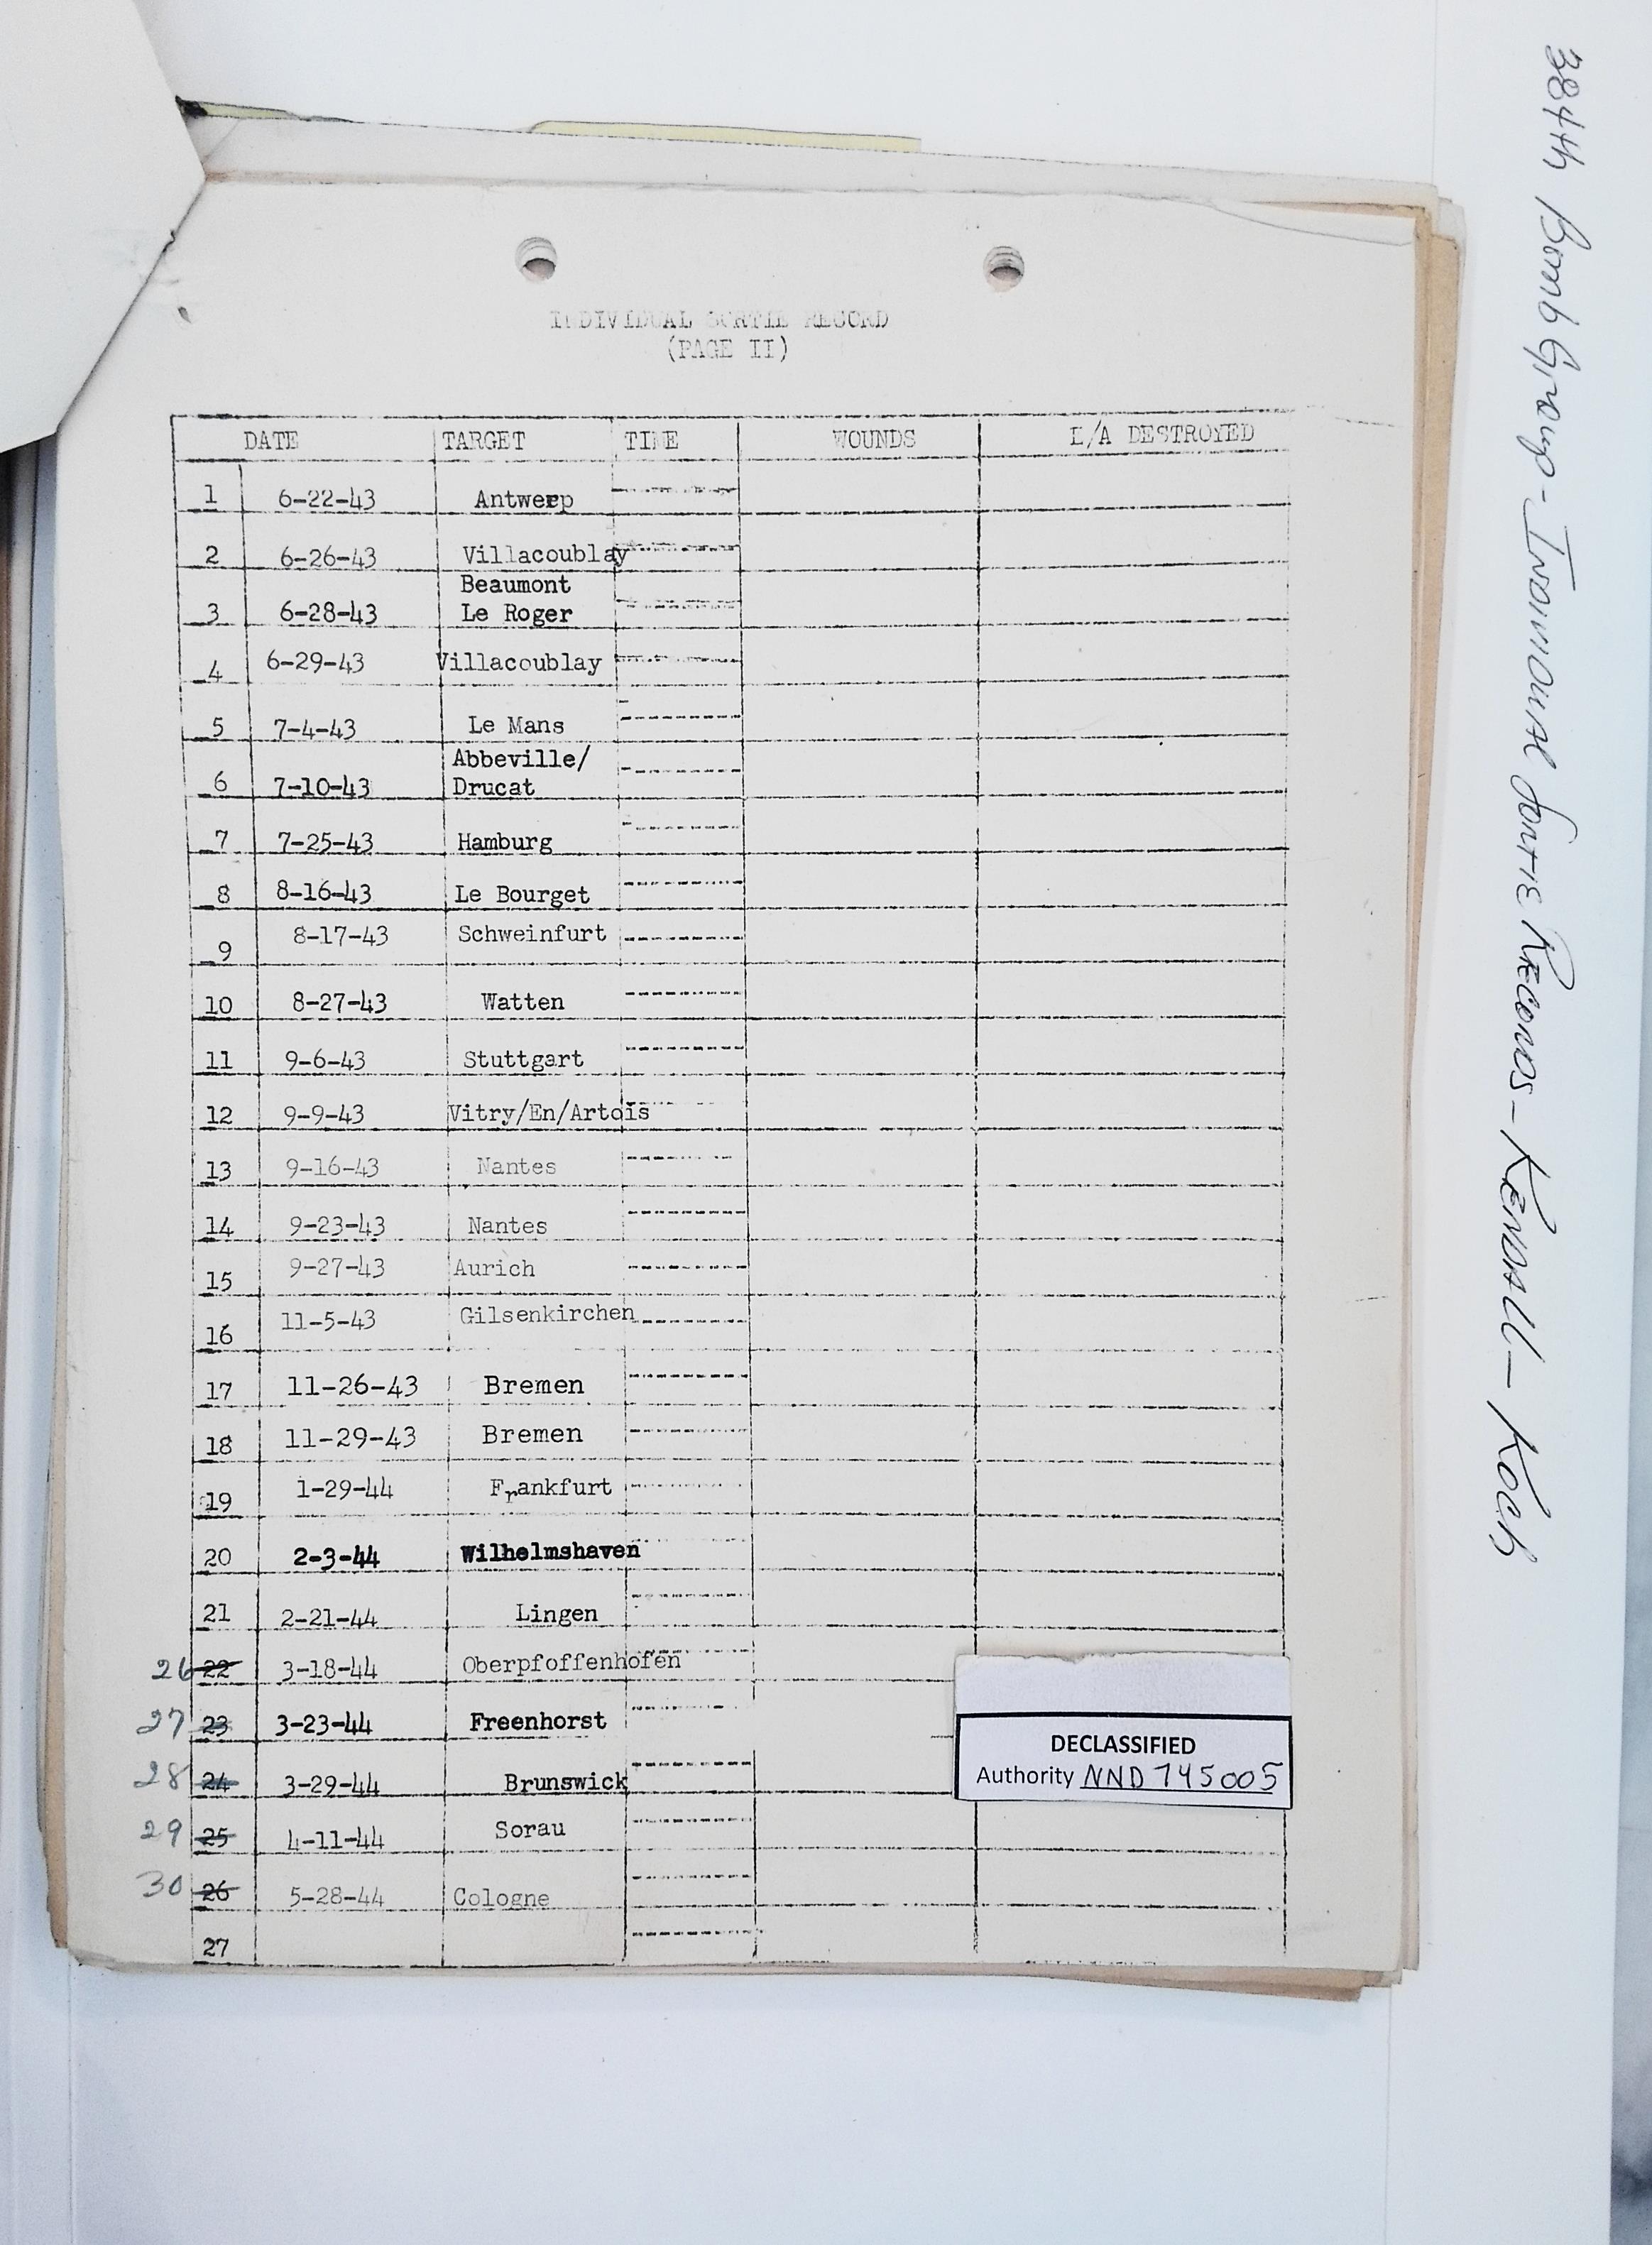 INDIVIDUAL SORTIE RECORD
(PAGE II)
DATE TARGET TIME WOUNDS E/A DESTROYED
1 6-22-43 Antwerp
2 6-26-43 Villacoublay
Beaumont
3 6-28-43 Le Roger
4 6-29-43 Villacoublay
5 7-4-43 Le Mans
Abbeville/
6 7-10-43 Drucat
7 7-25-43 Hamburg
8 8-16-43 Le Bourget
9 8-17-43 Schweinfurt
10 8-27-43 Watten
11 9-6-43 Stuttgart
12 9-9-43 Vitry/En/Artois
13 9-16-43 Nantes
14 9-23-43 Nantes
15 9-27-43 Aurich
16 11-5-43 Gilsenkirchen
17 11-26-43 Bremen
18 11-29-43 Bremen
19 1-29-44 Frankfurt
20 2-3-44 Wilhelmshaven
21 2-21-44 Lingen
26 22 3-18-44 Oberpfoffenhofen
27 23 3-23-44 Freenhorst
28 24 3-29-44 Brunswick
29 25 4-11-44 Sorau
30 26 5-28-44 Cologne
27
DECLASSIFIED
Authority NND 745005
384th Bomb Group - Individual Sortie Records - Kendall - Koch